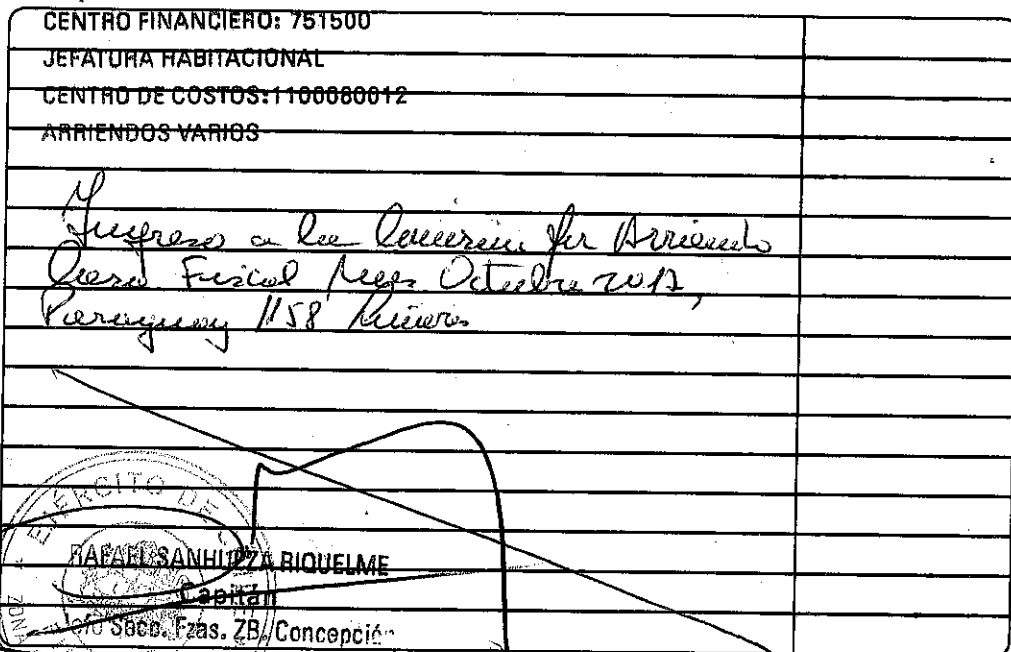 CENTRO FINANCIERO: 751500
JEFATURA HABITACIONAL
CENTRO DE COSTOS: 1100080012
ARRIENDOS VARIOS
Ingreso a la por Arriendo
Casa Fiscal Mes Octubre 2012,
Paraguay 1158
EJERCITO DE
RAFAEL SANHUEZA RIQUELME
Capitán
Secc. Fzas. ZB. Concepción